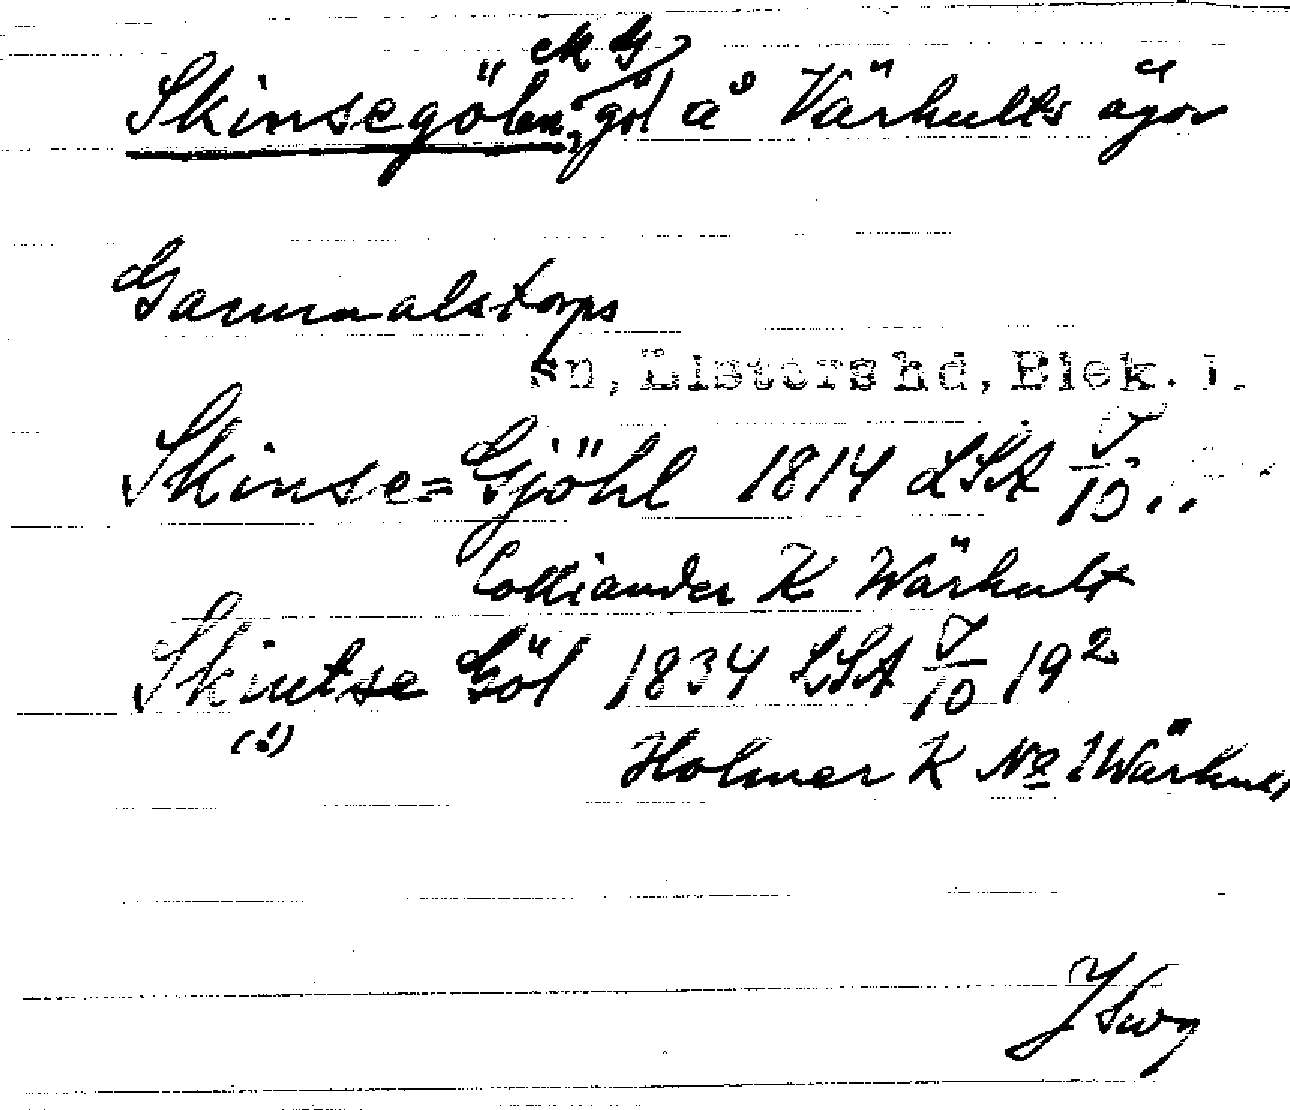 Skinsegölen, göl å Värhults ägor
Gammalstorps
sn, Listers hd, Blek. l.
Skinse=Gjöhl 1814 LSA
Colliander K Wärhult
Skintse Göl 1834 LSA J/10 19²
(!)
Holmer K No 1 Wärhult